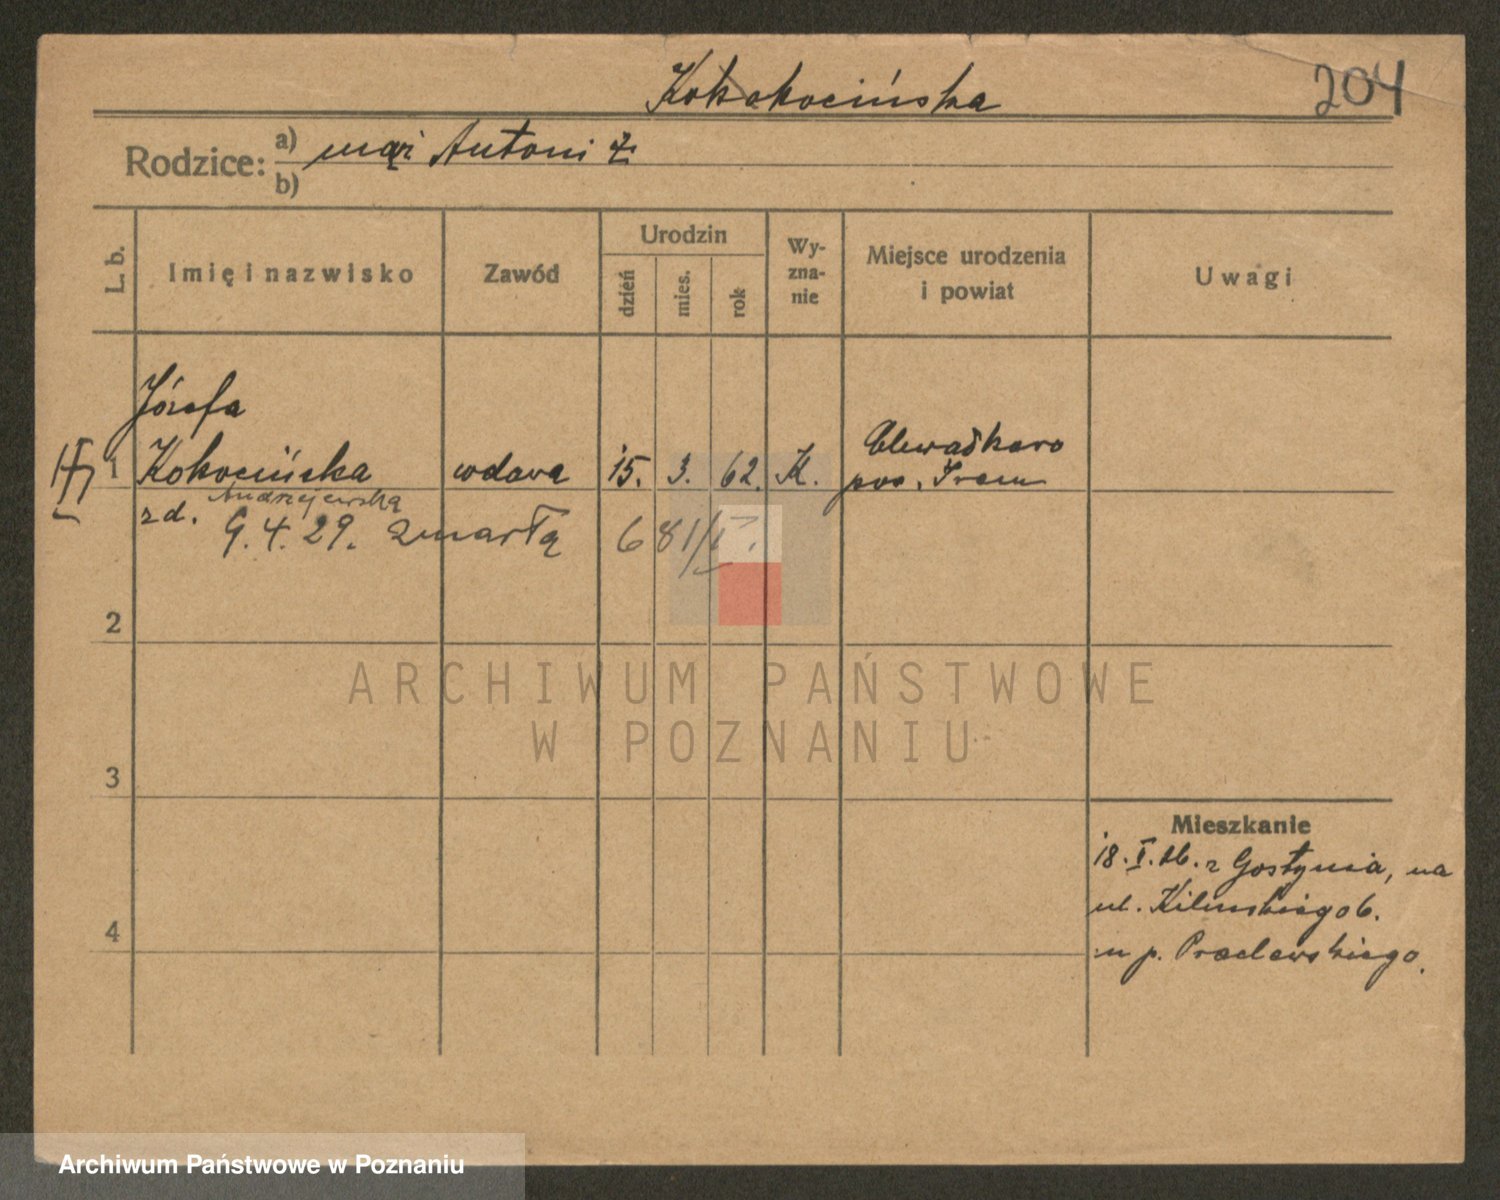 Kokokocińska
204
Rodzice: a) mąż Antoni Ż.
b)
L. b.
Imię i nazwisko
Zawód
Urodzin
dzień
mies.
rok
Wy-
zna-
nie
Miejsce urodzenia
i powiat
Uwagi
Józefa
1 Kokocińska wdowa 15. 3. 62. K.
pow. Śrem
zd. Andrzejewska
9. 4. 29. zmarła 681/
2
ARCHIWUM PAŃSTWOWE
W POZNANIU
3
Mieszkanie
18. I. 26. z Gostynia, na
ul. Kilińskiego 6.
4
u p. Pracławskiego.
Archiwum Państwowe w Poznaniu